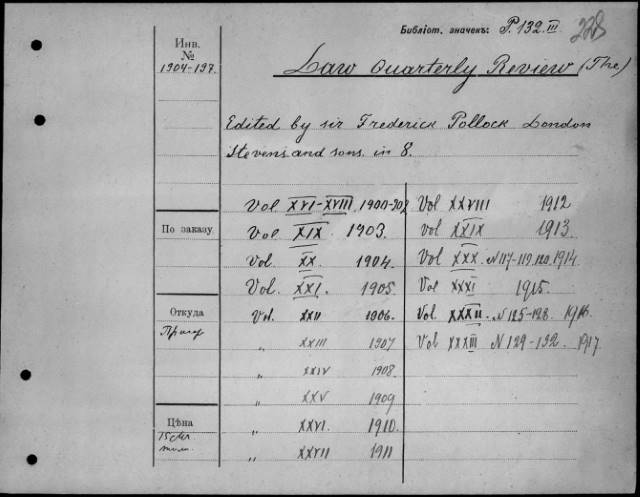 Библіот. значекъ: P. 132. III
228
Инв.
№
1904-197.
Law Quarterly Review (The)
Edited by sir Frederick Pollock London
Stevens and sons. in 8.
Vol XVI-XVIII 1900-902
Vol XIX 1903.
Vol. XX. 1904.
Vol. XXI. 1905.
Vol. XXII 1906.
„ XXIII 1907
„ XXIV 1908.
„ XXV 1909
„ XXVI. 1910.
„ XXVII 1911
Vol XXVIII 1912
Vol XXIX 1913.
Vol XXX. N 117-119, 120. 1914
Vol XXXI 1915.
Vol. XXXII. N 125-128. 1916.
Vol XXXIII N 129-132. 1917.
По заказу.
Откуда
Цѣна